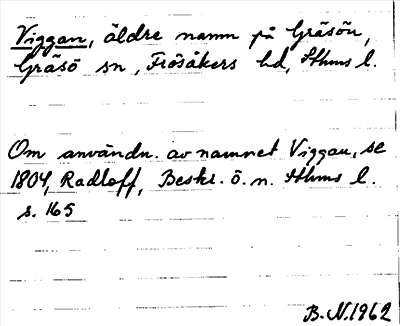 Viggan, äldre namn på Gräsön,
Gräsö sn, Frösåkers hd, Sthms l.
Om användn. av namnet Viggan, se
1804, Radloff, Beskr. ö. n. Sthms l.
s. 165
B. N. 1962